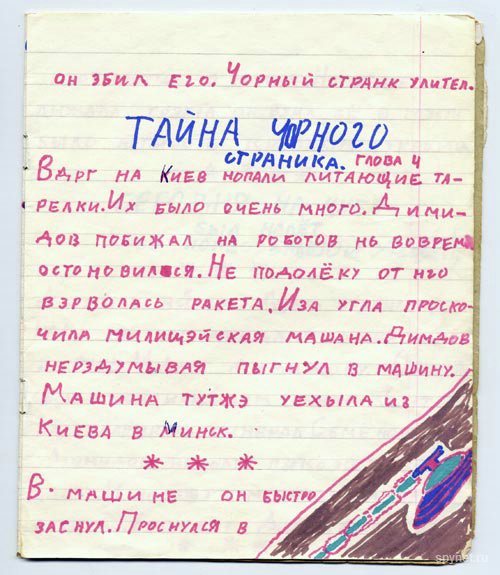 он збил его. Чорный странк улител.
ТАЙНА ЧОРНОГО
СТРАНИКА. ГЛОВА 4
Вдрг на Киев нопали литающие та-
релки. Их было очень много. Дими-
дов побижал на роботов нь воврем
остоновился. Не подолёку от нго
взрволась ракета. Иза угла проско-
чила милищэйская машана. Димдов
нерздумывая пыгнул в машину.
Машина тутжэ уехыла из
Киева в Минск.
* * *
В машине он быстро
заснул. Проснулся в
spynet.ru